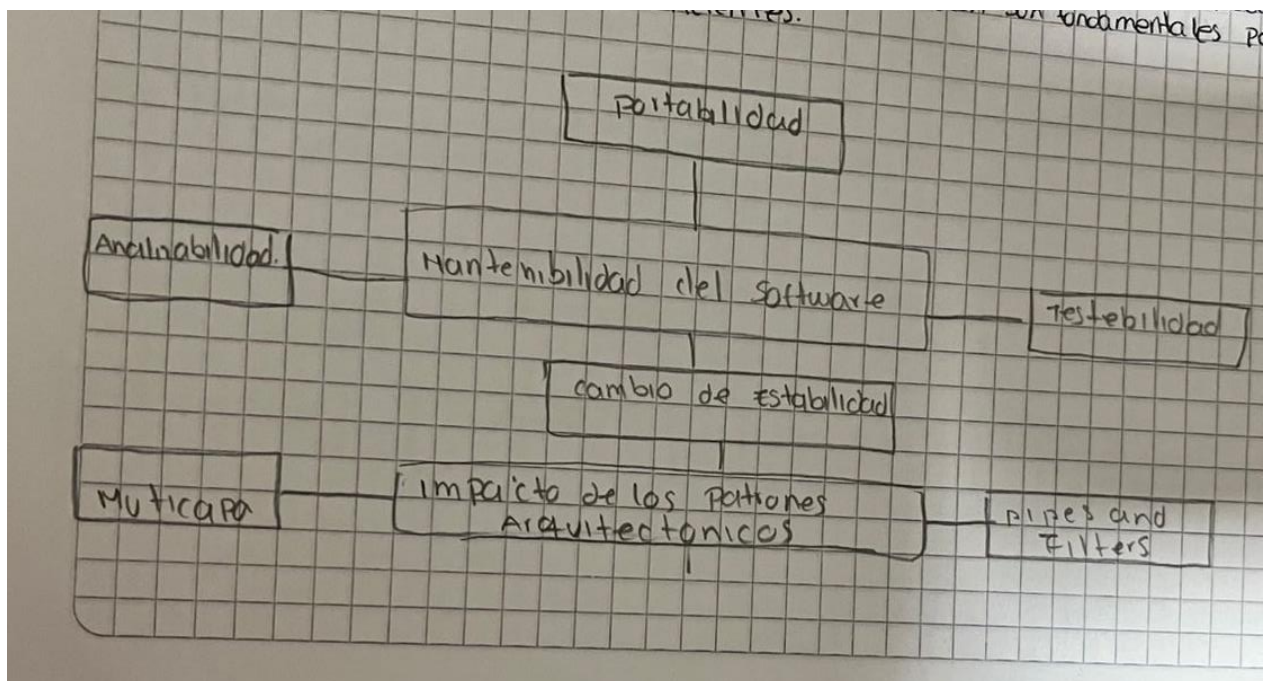 son fundamentales
portabilidad
Analizabilidad.
Mantenibilidad del software
Testebilidad
cambio de Estabilidad
Muticapa
impacto de los patrones
Arquitectónicos
pipes and
Filters